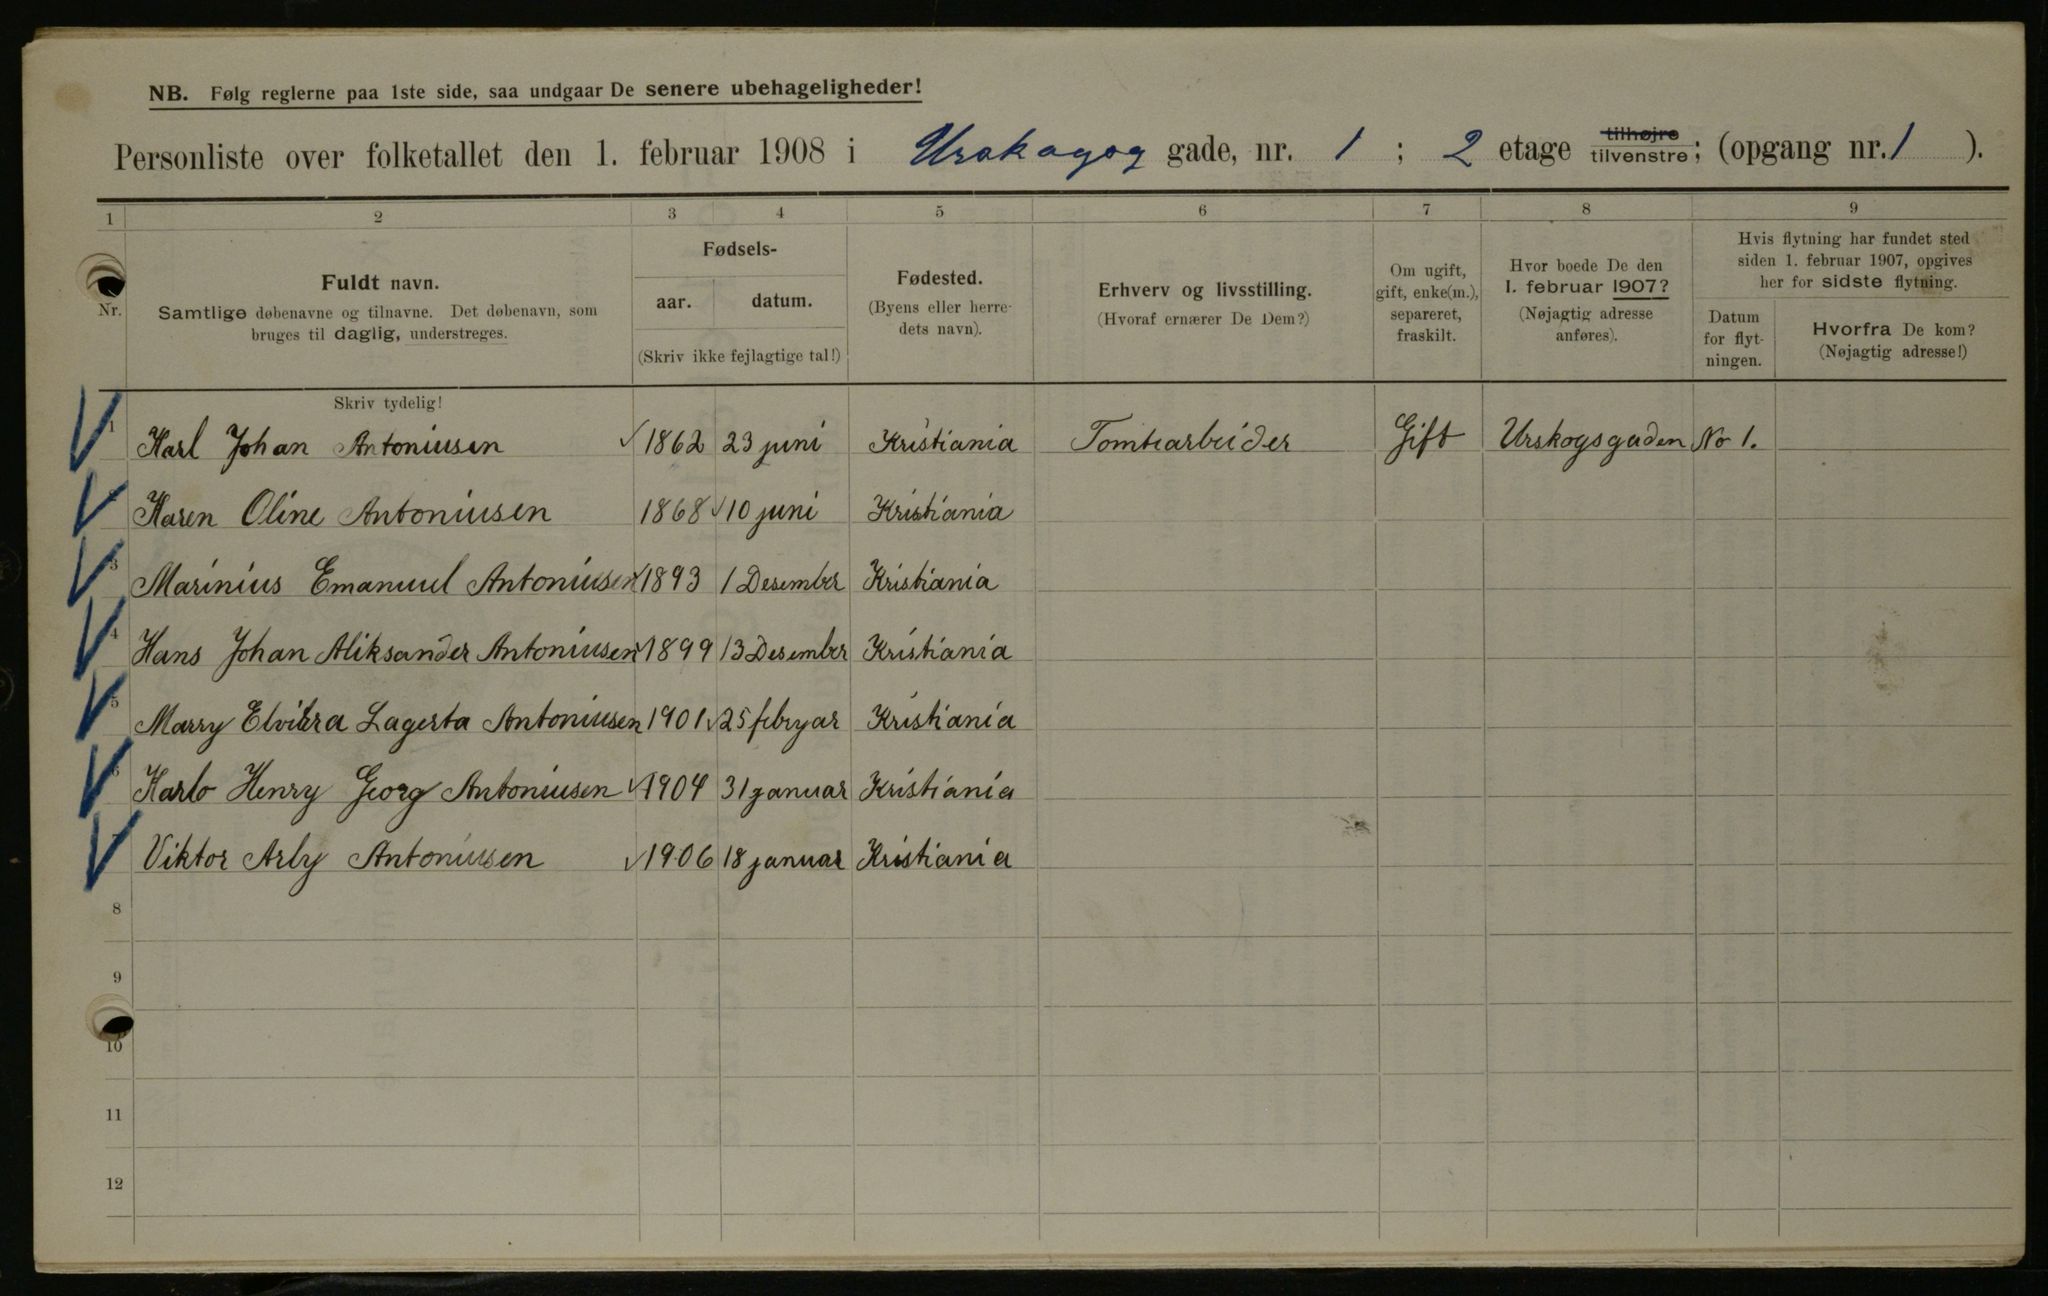 NB. Følg reglerne paa 1ste side, saa undgaar De senere ubehageligheder!
Personliste over folketallet den 1. februar 1908 i Urskogsg gade, nr. 1 ; 2 etage tilhøjre tilvenstre; (opgang nr. 1 ).
1 2 3 4 5 6 7 8 9
Nr.
Fuldt navn.
Samtlige døbenavne og tilnavne. Det døbenavn, som
bruges til daglig, understreges.
Fødsels-
aar. datum.
(Skriv ikke fejlagtige tal!)
Fødested.
(Byens eller herre-
dets navn).
Erhverv og livsstilling.
(Hvoraf ernærer De Dem?)
Om ugift,
gift, enke(m.),
separeret,
fraskilt.
Hvor boede De den
1. februar 1907?
(Nøjagtig adresse
anføres).
Hvis flytning har fundet sted
siden 1. februar 1907, opgives
her for sidste flytning.
Datum
for flyt-
ningen.
Hvorfra De kom?
(Nøjagtig adresse!)
Skriv tydelig!
1 Karl Johan Antoniusen 1862 23 juni Kristiania Tomtearbeider Gift Urskogsgaden No 1.
Karen Oline Antoniusen 1868 10 juni Kristiania
3 Marinius Emanuel Antoniusen 1893 1 Desember Kristiania
4 Hans Johan Aliksander Antoniusen 1899 13 Desember Kristiania
5 Marry Elvikra Lagerta Antoniusen 1901 25 febryar Kristiania
6 Karlo Henry Georg Antoniusen 1904 31 januar Kristiania
7 Viktor Arly Antoniusen 1906 18 januar Kristiania
8
9
10
11
12